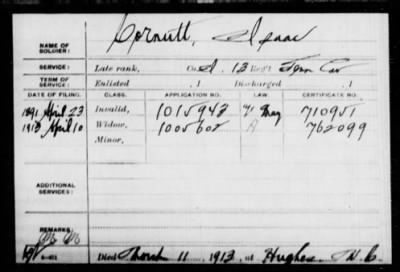 NAME OF SOLDIER: Cornutt, Isaac
SERVICE: Late rank, Co. I, 13 Reg't Tenn Cav
TERM OF SERVICE: Enlisted , 1 Discharged , 1
DATE OF FILING. CLASS. APPLICATION NO. LAW. CERTIFICATE NO.
1891 April 23 Invalid, 1015943 710951
1913 April 10 Widow, 1005602 A 762099
Minor,
ADDITIONAL SERVICES:
REMARKS:
Died March 11, 1913, at Hughes N.C.